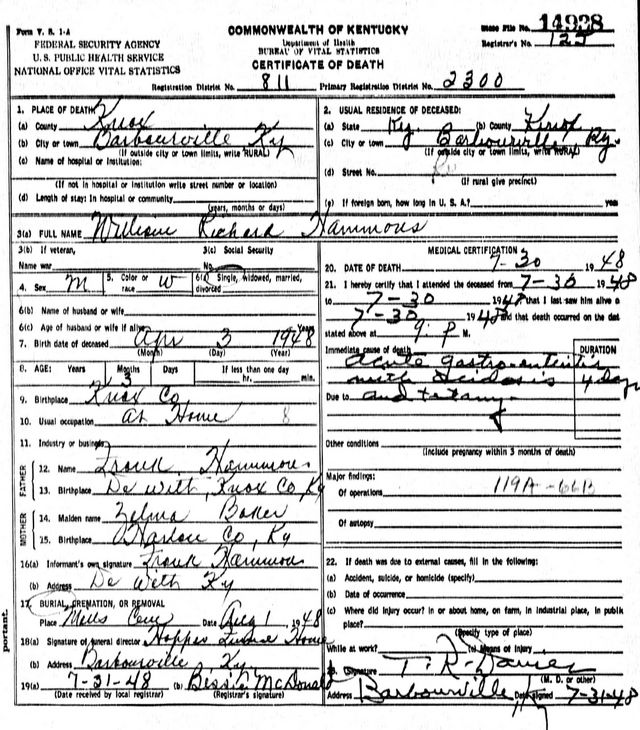 Form V. S. 1-A
FEDERAL SECURITY AGENCY
U. S. PUBLIC HEALTH SERVICE
NATIONAL OFFICE VITAL STATISTICS
COMMONWEALTH OF KENTUCKY
Department of Health
BUREAU OF VITAL STATISTICS
CERTIFICATE OF DEATH
File No. 14938
Registrar's No. 125
Registration District No. 811 Primary Registration District No. 2300
1. PLACE OF DEATH
(a) County Knox
(b) City or town Barbourville Ky
(If outside city or town limits, write RURAL)
(c) Name of hospital or Institution:
(If not in hospital or institution write street number or location)
(d) Length of stay: In hospital or community
(years, months or days)
2. USUAL RESIDENCE OF DECEASED:
(a) State Ky. (b) County Knox
(c) City or town Barbourville Ky.
(If outside city or town limits, write RURAL)
(d) Street No.
(If rural give precinct)
(e) If foreign born, how long in U. S. A.? years
3(a) FULL NAME William Richard Hammons
3(b) If veteran,
Name war
3(c) Social Security
No.
4. Sex M
5. Color or race W
6(a) Single, widowed, married, divorced
6(b) Name of husband or wife
6(c) Age of husband or wife if alive Years
7. Birth date of deceased Apr 3 1948
(Month) (Day) (Year)
8. AGE: Years Months Days If less than one day
3 hr. min.
9. Birthplace Knox Co
10. Usual occupation at Home 8
11. Industry or business
FATHER
12. Name Frank Hammons
13. Birthplace De With, Knox Co, Ky
MOTHER
14. Maiden name Zelma Baker
15. Birthplace Harlan Co, Ky
16(a) Informant's own signature Frank Hammons
(b) Address De With Ky
17. BURIAL, CREMATION, OR REMOVAL
Place Mills Cem Date Aug 1, 1948
18(a) Signature of funeral director Hopper Funeral Home
(b) Address Barbourville, Ky.
19(a) 7-31-48 (b) Bessie McDonald
(Date received by local registrar) (Registrar's signature)
MEDICAL CERTIFICATION
20. DATE OF DEATH 7-30 1948
21. I hereby certify that I attended the deceased from 7-30 1948
to 7-30 1948 that I last saw him alive on
7-30 1948 and that death occurred on the date
stated above at 9: P M.
Immediate cause of death
DURATION
Acute gastro-enteritis
with Acidosis 4 days
Due to and tetany
Other conditions
(Include pregnancy within 3 months of death)
Major findings:
Of operations 119A-66B
Of autopsy
22. If death was due to external causes, fill in the following:
(a) Accident, suicide, or homicide (specify)
(b) Date of occurrence
(c) Where did injury occur? In or about home, on farm, in industrial place, in public
place?
(Specify type of place)
While at work? (e) Means of injury
23. Signature T. R. Davies
(M. D. or other)
Address Barbourville, Ky Date signed 7-31-48
portant.